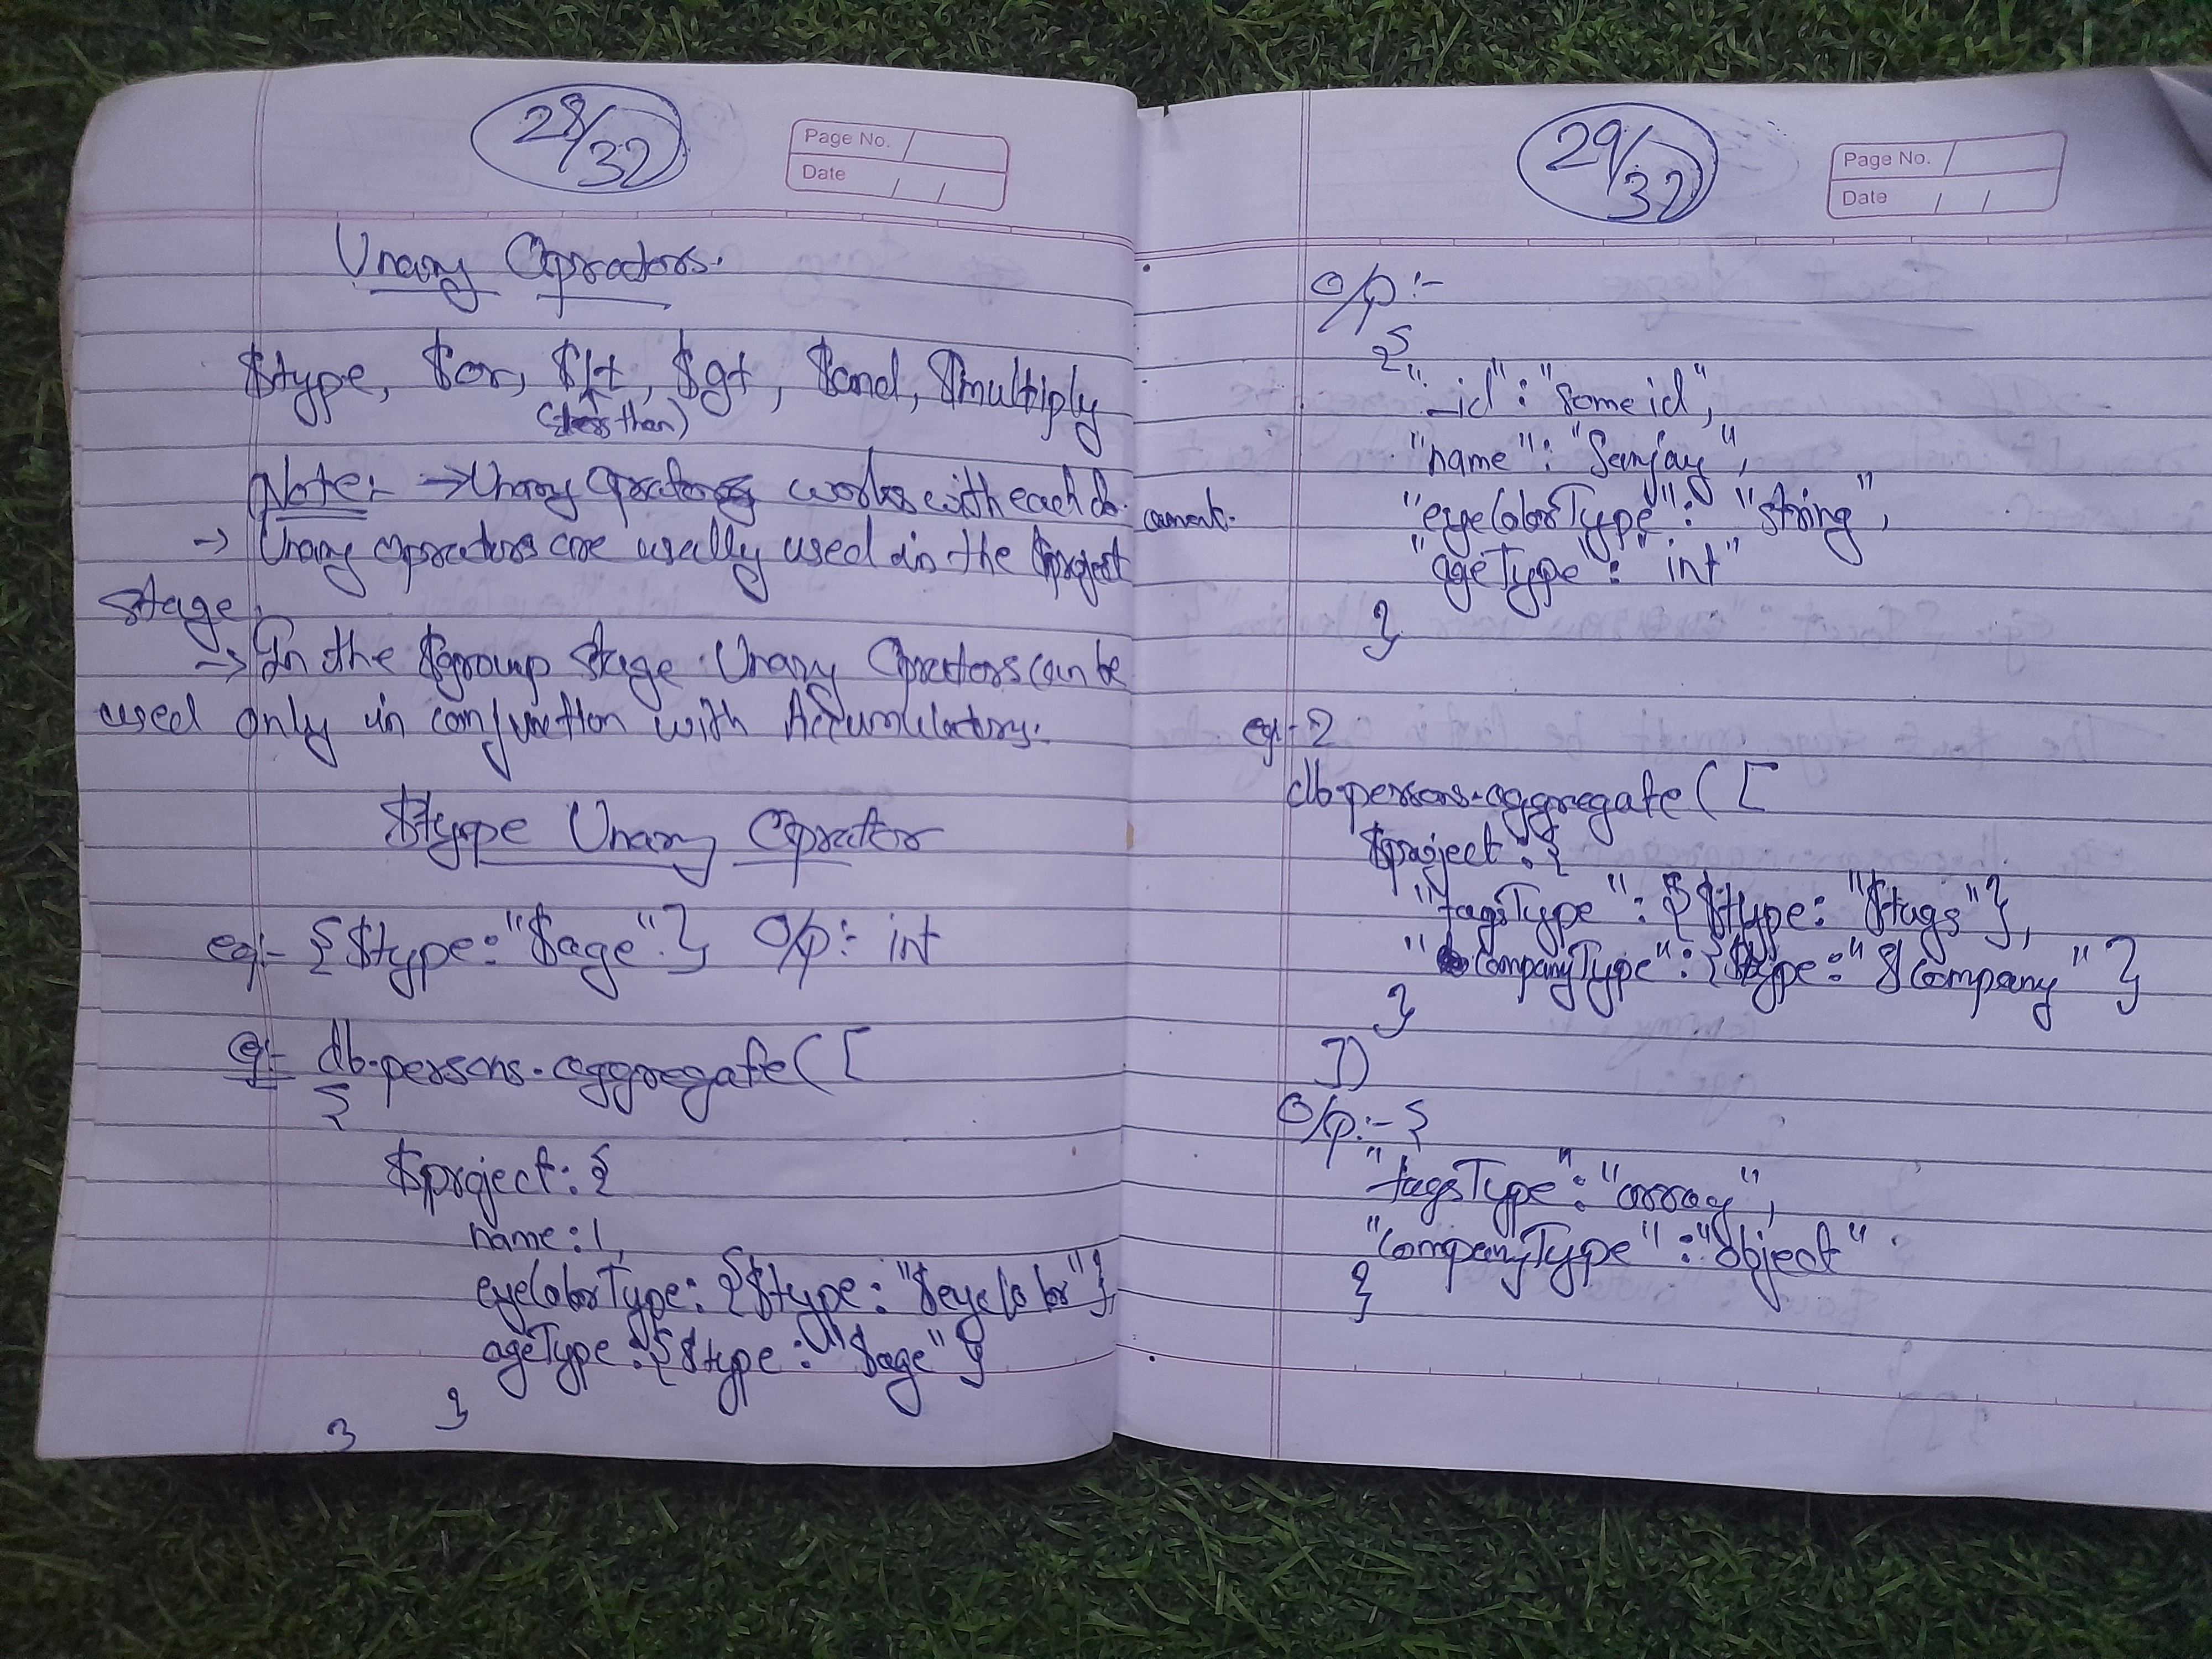 28/32
Page No.
Date / /
Unary Operators.
$type, $or, $lt, $gt, $and, $multiply
(less than)
Note:- → Unary Operators works with each do
cument.
→ Unary operators are usually used in the $project
stage
→ In the $group stage Unary Operators can be
used only in conjunction with Accumulators.
$type Unary Operator
eg:- { $type: "$age" } O/p:- int
eg:- db.persons.aggregate( [
{
$project: {
name: 1,
eyeColorType: { $type: "$eyeColor" },
ageType: { $type: "$age" }
}
}
29/32
Page No.
Date / /
O/p:-
{
"_id": "Some id",
"name": "Sanjay",
"eyeColorType": "string",
"ageType": "int"
}
eg-2
db.persons.aggregate( [
$project: {
"tagsType": { $type: "$tags" },
"companyType": { $type: "$company" }
}
])
O/p:- {
"tagsType": "array",
"companyType": "object"
}